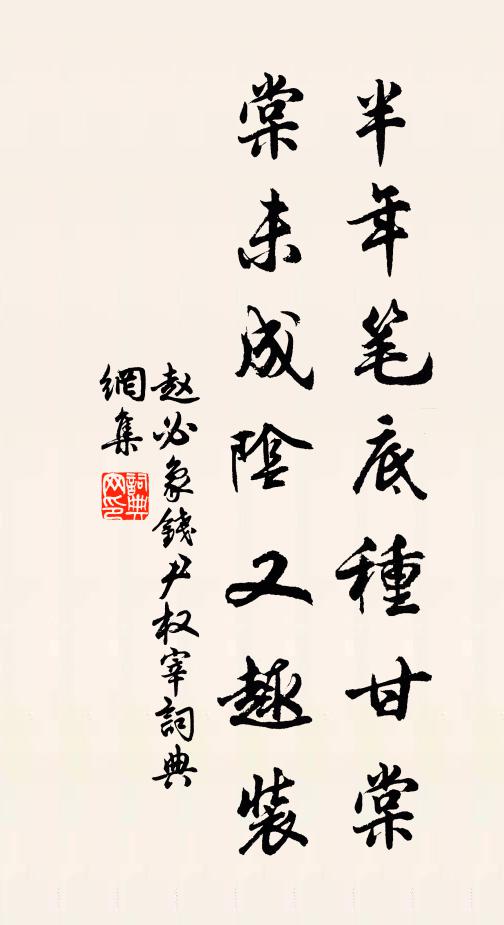 半年笔底種甘棠
棠未成陰又趣裝
赵必象錢尹权宰詞典
網集
詞典
网印